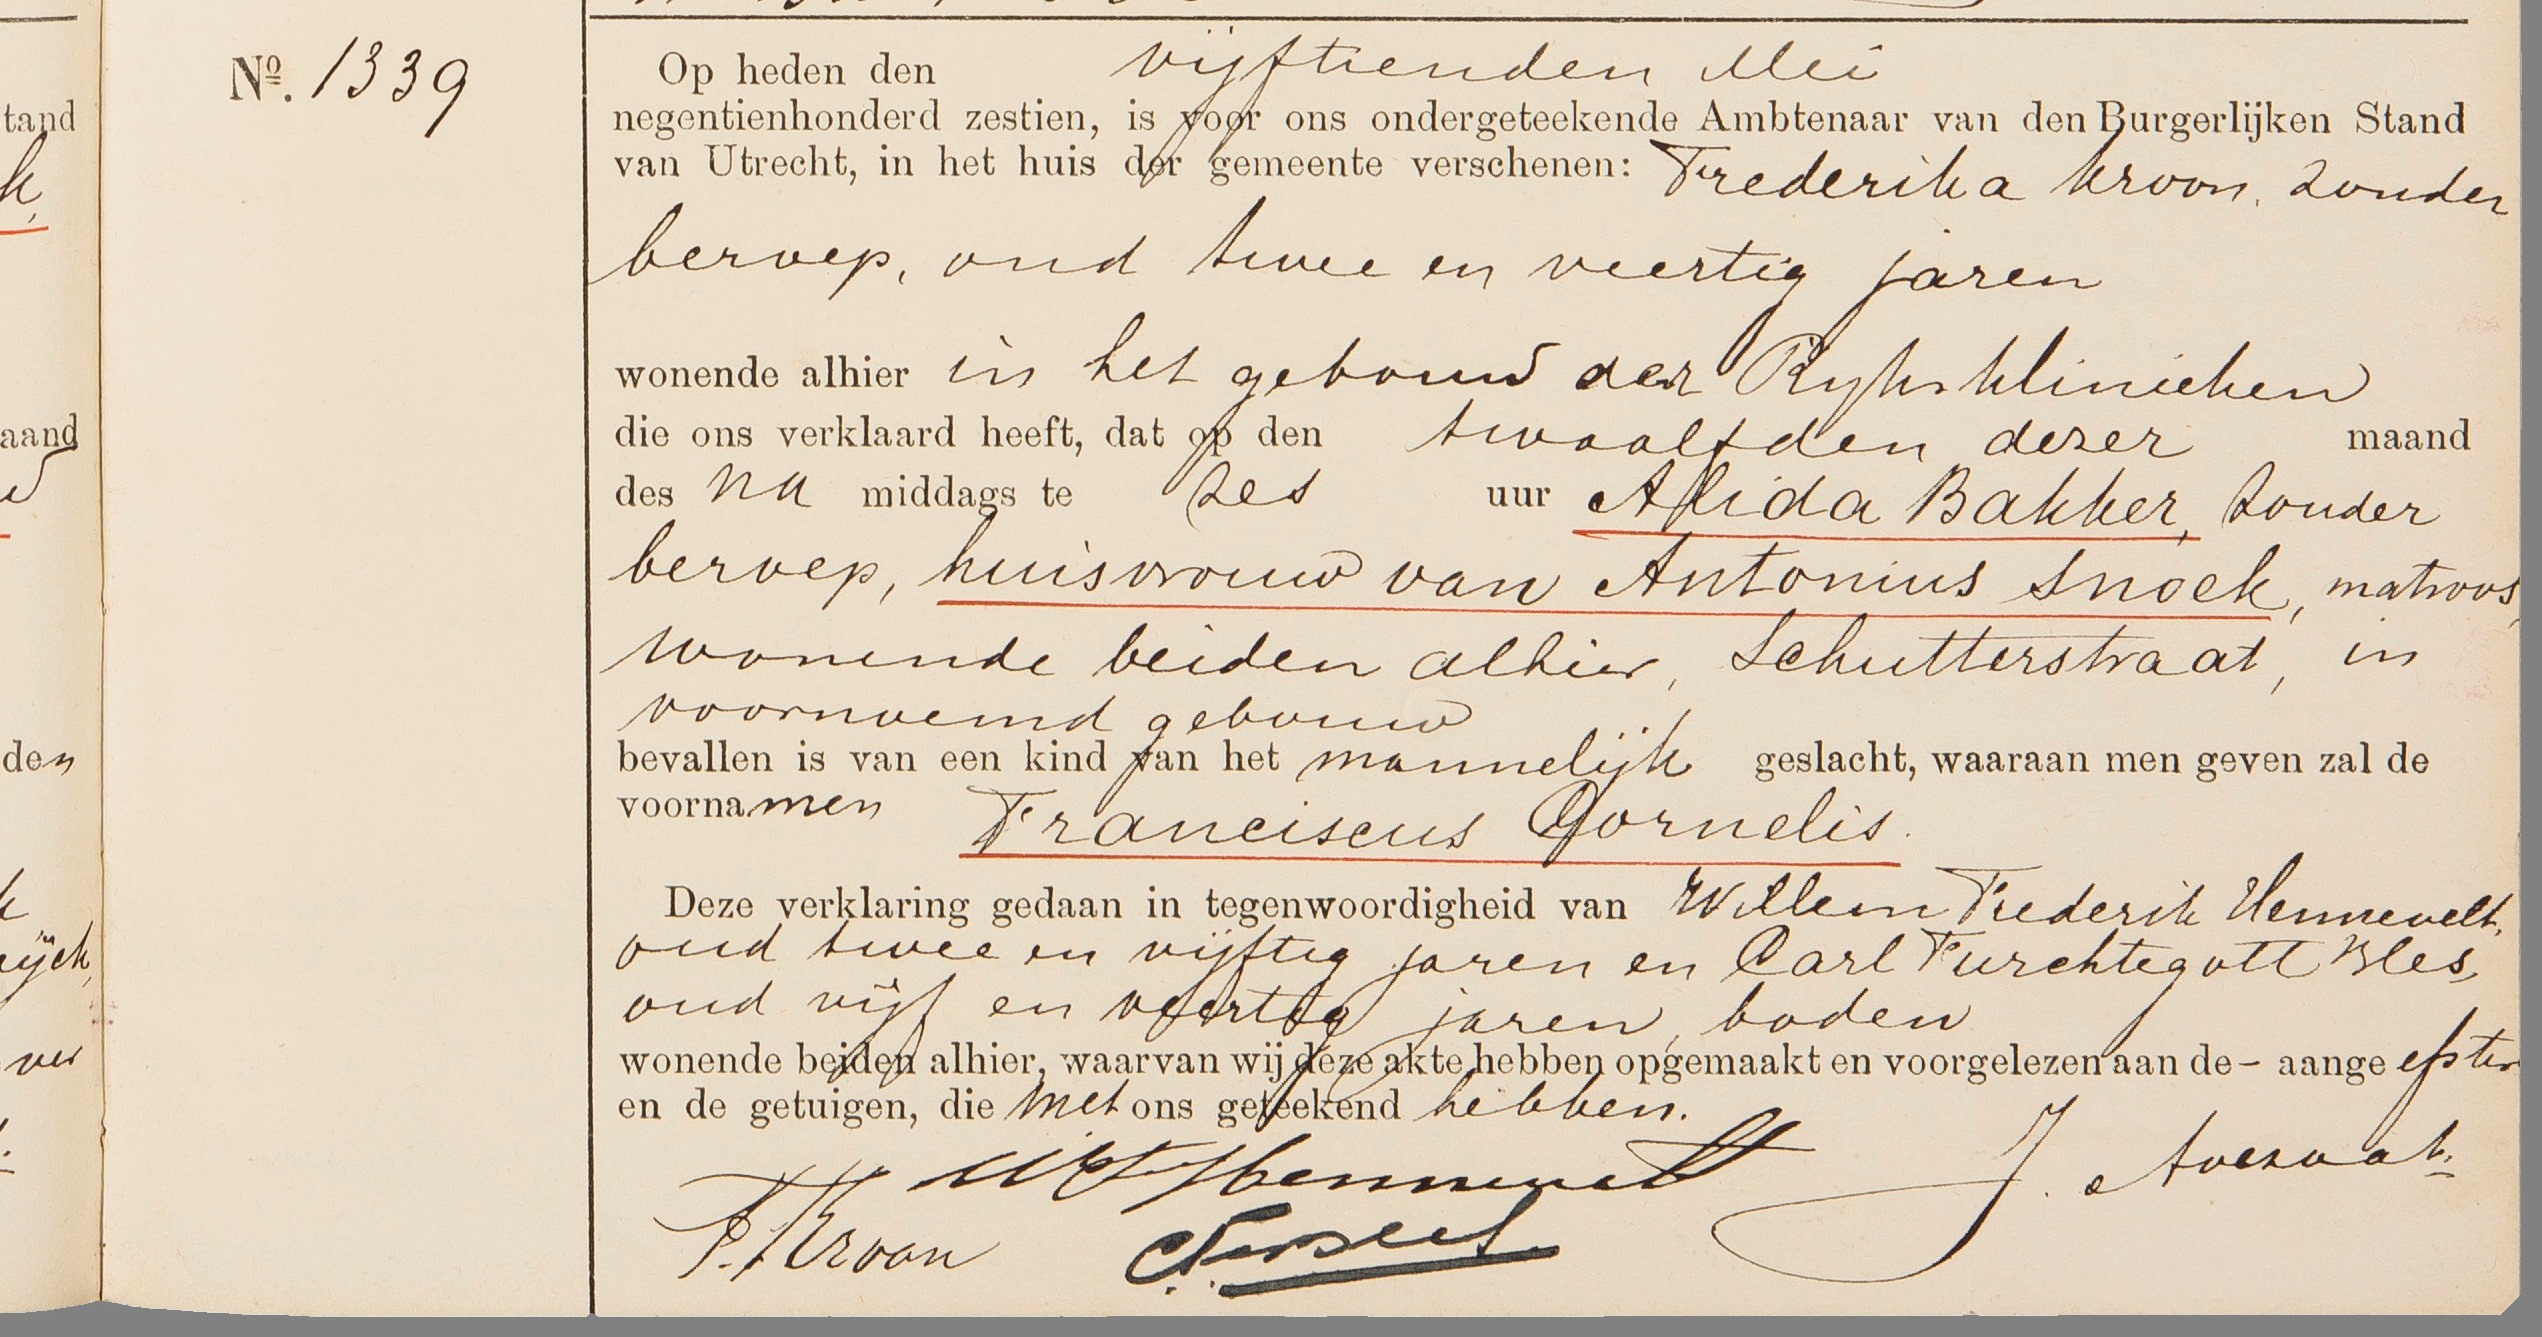 tand
k,
aand
den
ver
Nº. 1339
Op heden den vijftienden Mei
negentienhonderd zestien, is voor ons ondergeteekende Ambtenaar van den Burgerlijken Stand
van Utrecht, in het huis der gemeente verschenen: Frederika Kroon, zonder
beroep, oud twee en veertig jaren
wonende alhier in het gebouw der Ryksklinieken
die ons verklaard heeft, dat op den twaalfden dezer maand
des na middags te zes uur Alida Bakker, zonder
beroep, huisvrouw van Antonius Snoek, matroos,
wonende beiden alhier, Schutterstraat, in
voornoemd gebouw
bevallen is van een kind van het mannelijk geslacht, waaraan men geven zal de
voornamen Franciscus Cornelis.
Deze verklaring gedaan in tegenwoordigheid van Willem Frederik Hennevelt,
oud twee en vijftig jaren en Carl Furchtegott Bles,
oud vijf en veertig jaren, boden
wonende beiden alhier, waarvan wij deze akte hebben opgemaakt en voorgelezen aan de- aangeefster
en de getuigen, die met ons geteekend hebben.
WF Hennevelt J.
F. Kroon